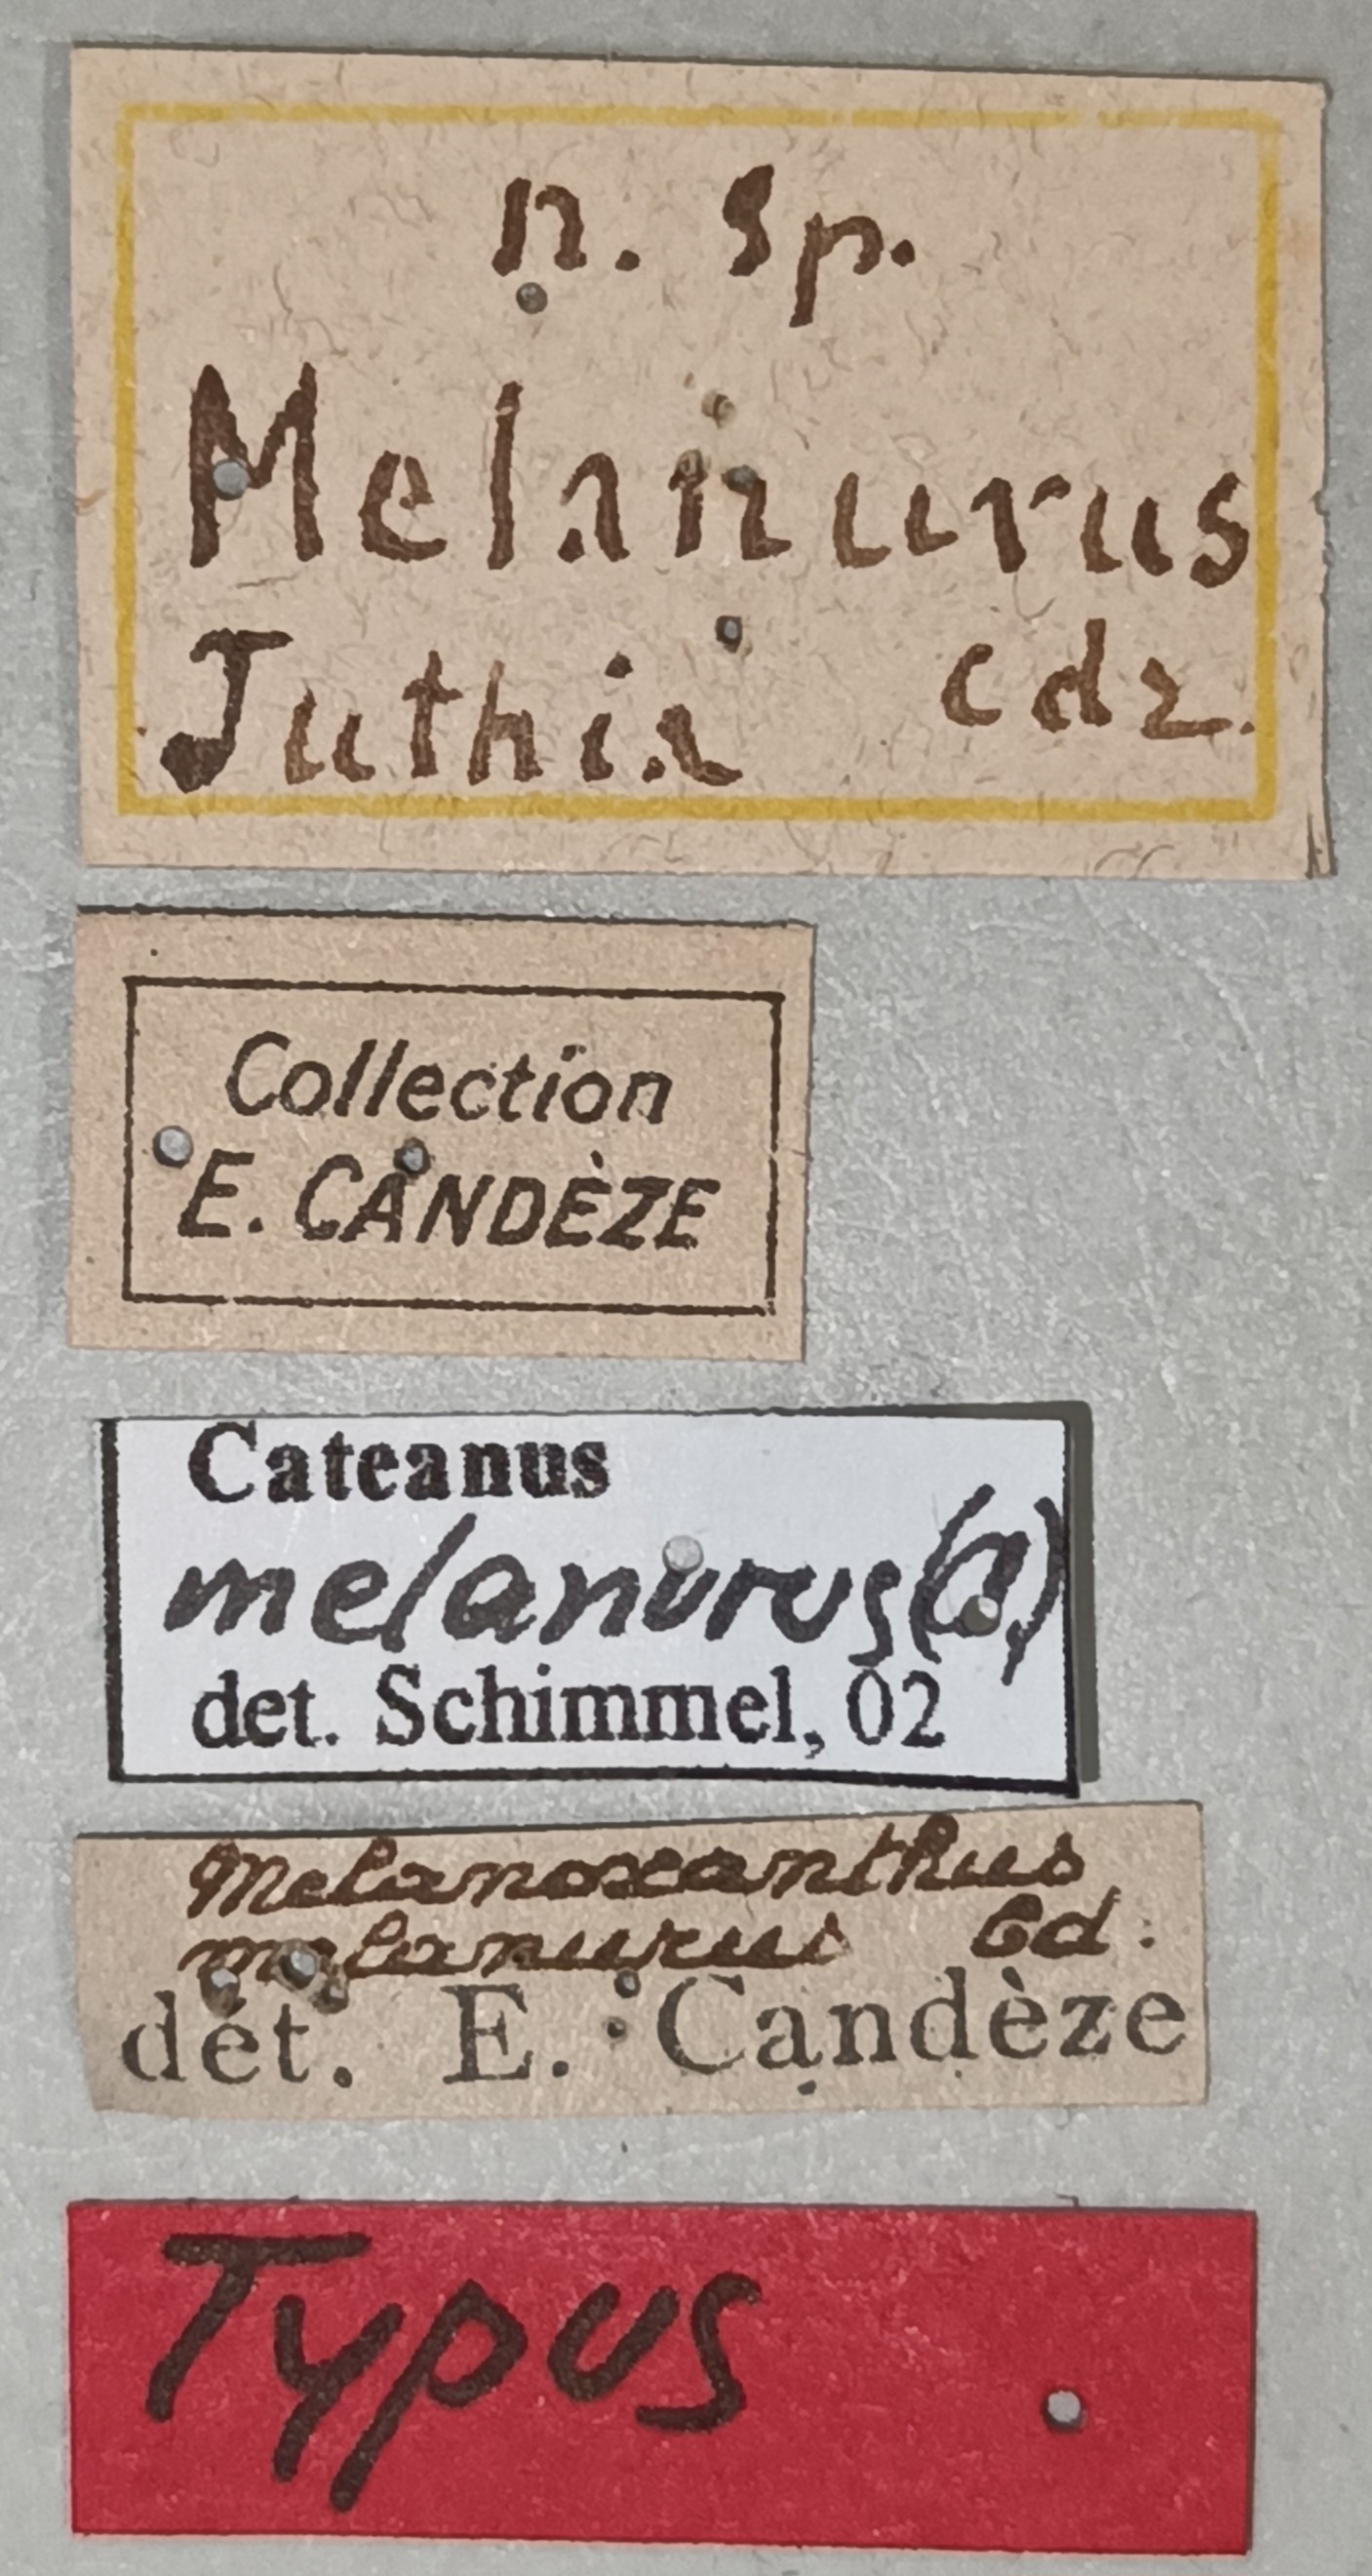 n. sp.
Melanurus
Juthia cdz.
Collection
E. CANDÈZE
Cateanus
melanurus
det. Schimmel, 02
Melanoxanthus
melanurus Cd:
dét. E. Candèze
Typus